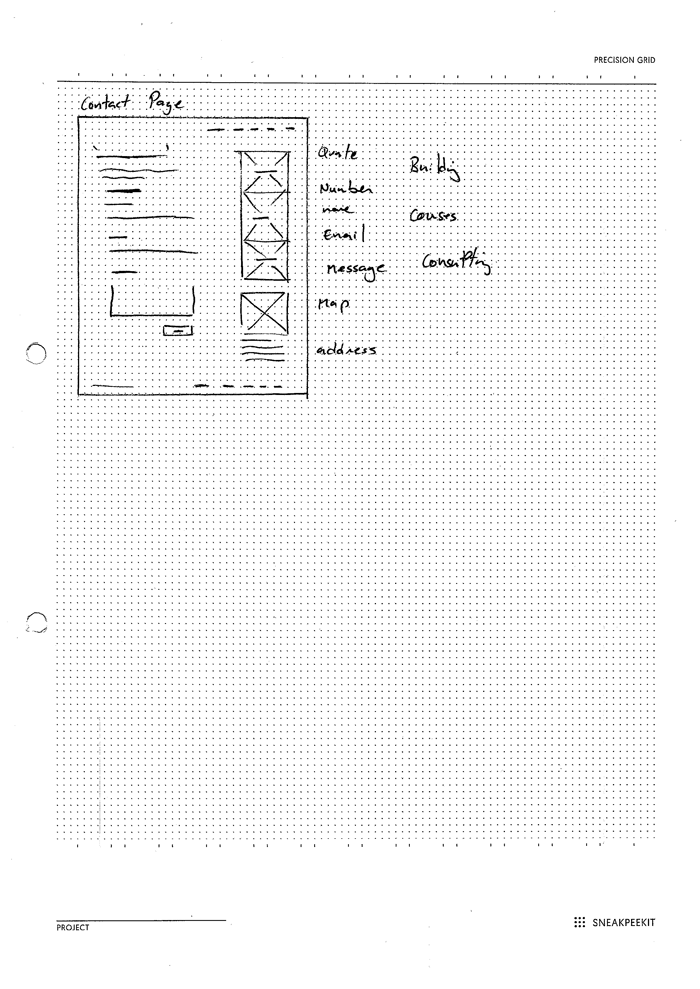 PRECISION GRID
Contact Page
Quote
Number
name
Email
message
Map
address
Building
Courses
Consulting
PROJECT
SNEAKPEEKIT